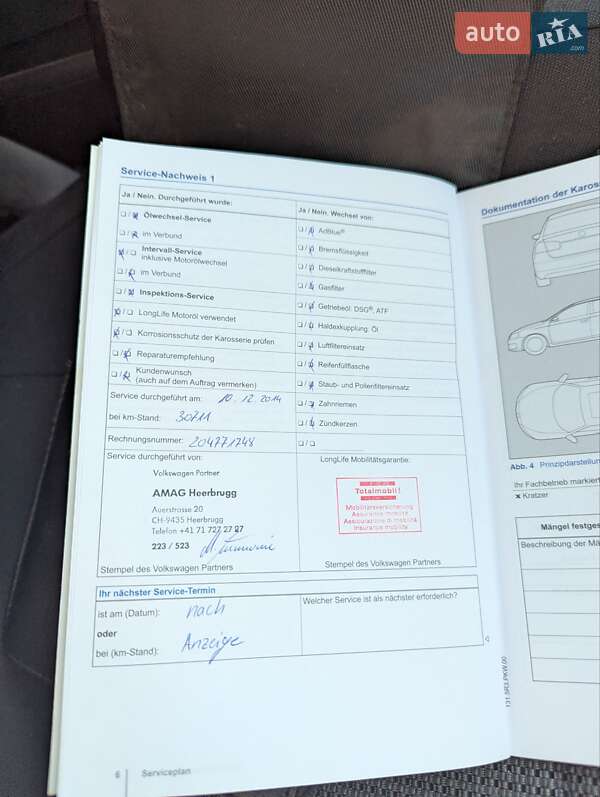 auto RIA .com
Service-Nachweis 1
Ja / Nein. Durchgeführt wurde:
Ölwechsel-Service
im Verbund
Intervall-Service
inklusive Motorölwechsel
im Verbund
Inspektions-Service
LongLife Motoröl verwendet
Korrosionsschutz der Karosserie prüfen
Reparaturempfehlung
Kundenwunsch
(auch auf dem Auftrag vermerken)
Service durchgeführt am: 10.12.2014
bei km-Stand: 30711
Rechnungsnummer: 204771748
Ja / Nein. Wechsel von:
AdBlue®
Bremsflüssigkeit
Dieselkraftstofffilter
Gasfilter
Getriebeöl: DSG®, ATF
Haldexkupplung: Öl
Luftfiltereinsatz
Reifenfüllflasche
Staub- und Pollenfiltereinsatz
Zahnriemen
Zündkerzen
Service durchgeführt von:
Volkswagen Partner
AMAG Heerbrugg
Auerstrasse 20
CH-9435 Heerbrugg
Telefon +41 71 727 27 27
223 / 523
Stempel des Volkswagen Partners
LongLife Mobilitätsgarantie:
Totalmobil!
Mobilitätsversicherung
Assurance mobilité
Assicurazione di mobilità
Insurance mobility
Stempel des Volkswagen Partners
Ihr nächster Service-Termin
ist am (Datum): nach
oder
bei (km-Stand): Anzeige
Welcher Service ist als nächster erforderlich?
6 Serviceplan
131.5R3.PKW.00
Dokumentation der Kaross
Abb. 4 Prinzipdarstellun
Ihr Fachbetrieb markier
x Kratzer
Mängel festges
Beschreibung der Mä